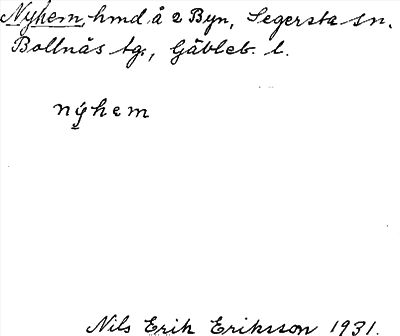 Nyhem, hmd å 2 Byn, Segersta sn,
Bollnäs tg., Gävleb. l.
nyhem
Nils Erik Eriksson 1931.